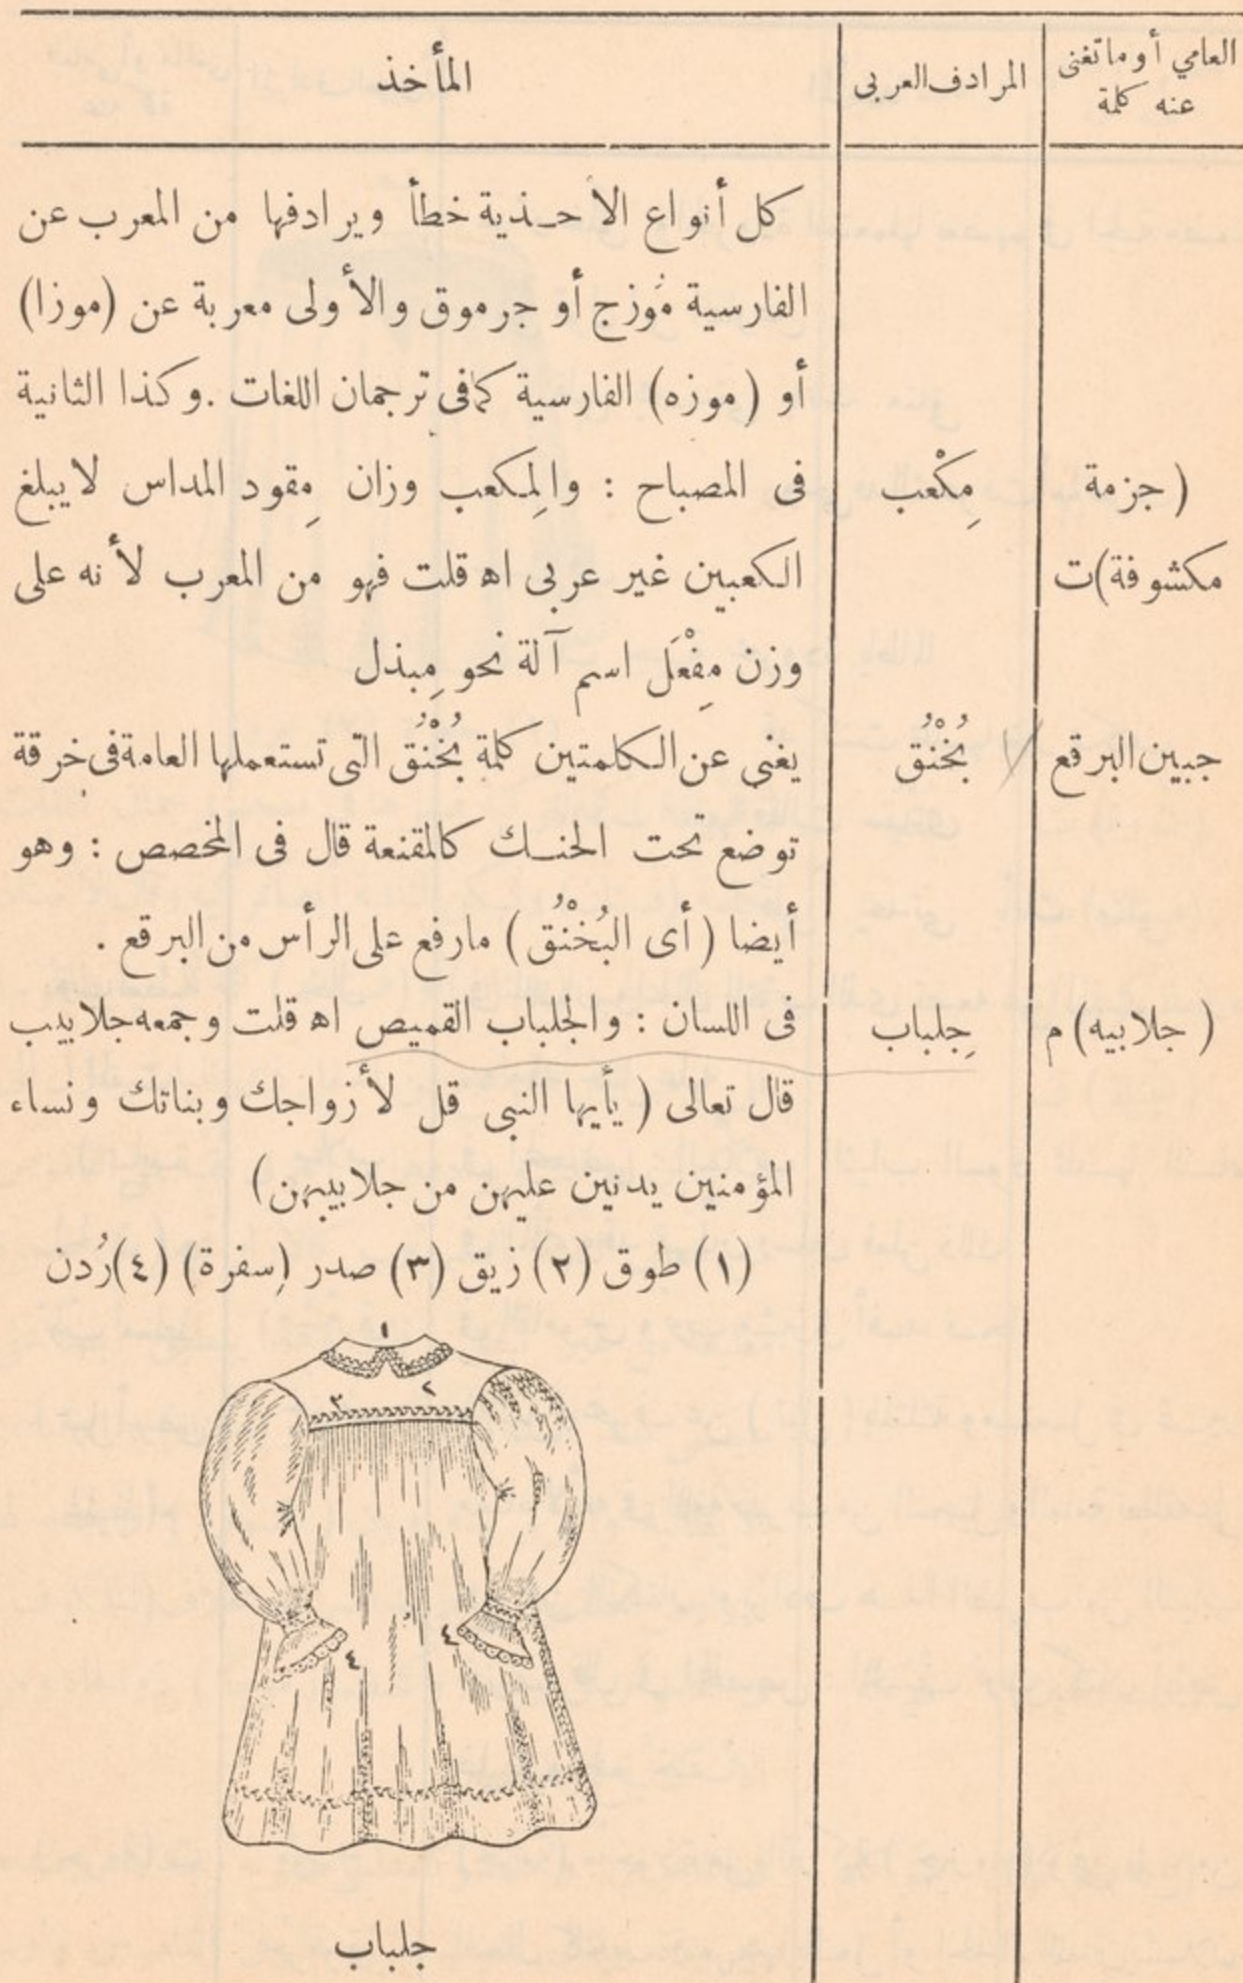 العامي أو ما تغنى عنه كلمة | المرادف العربى | المأخذ
كل أنواع الأحـذية خطأ ويرادفها من المعرب عن
الفارسية مُوزج أو جرموق والأولى معربة عن (موزا)
أو (موزه) الفارسية كما فى ترجمان اللغات . وكذا الثانية
(جزمة | مِكْعب | فى المصباح : والمِكعب وزان مِقود المداس لا يبلغ
مكشوفة)ت | الكعبين غير عربى اه قلت فهو من المعرب لأنه على
وزن مِفْعَل اسم آلة نحو مِبذل
جبين البرقع | بُخْنُق | يغنى عن الكلمتين كلمة بُخْنُق التى تستعملها العامة فى خرقة
توضع تحت الحنـك كالمقنعة قال فى المخصص : وهو
أيضا (أى البُخْنُق) مارفع على الرأس من البرقع .
(جلابيه) م | جِلباب | فى اللسان : والجلباب القميص اه قلت وجمعه جلابيب
قال تعالى (يأيها النبى قل لأزواجك وبناتك ونساء
المؤمنين يدنين عليهن من جلابيبهن)
(١) طوق (٢) زيق (٣) صدر (سفرة) (٤) رُدن
١
٢
٣
٤
٤
جلباب